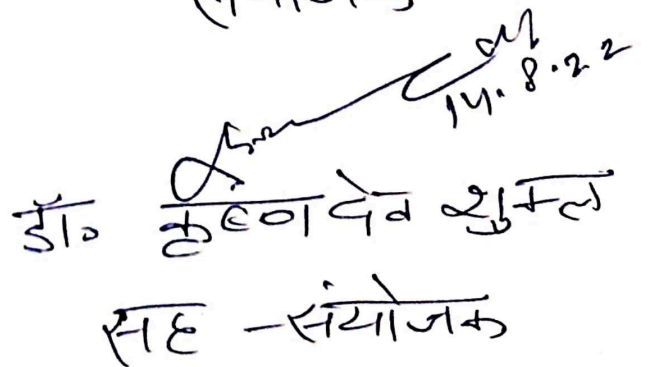 14.8.22
डॉ० कृष्ण देव शुक्ल
सह -संयोजक